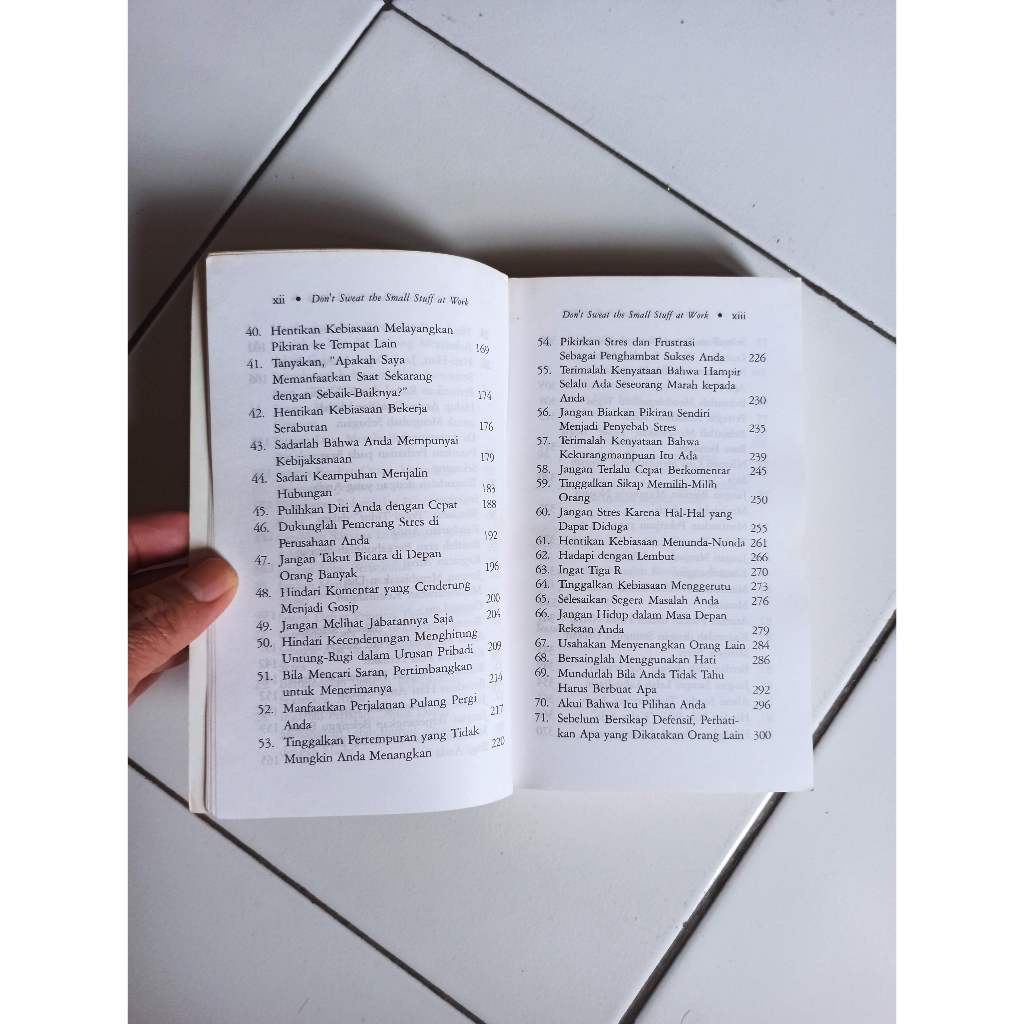 xii • Don't Sweat the Small Stuff at Work
40. Hentikan Kebiasaan Melayangkan
Pikiran ke Tempat Lain 169
41. Tanyakan, "Apakah Saya
Memanfaatkan Saat Sekarang
dengan Sebaik-Baiknya?" 174
42. Hentikan Kebiasaan Bekerja
Serabutan 176
43. Sadarlah Bahwa Anda Mempunyai
Kebijaksanaan 179
44. Sadari Keampuhan Menjalin
Hubungan 183
45. Pulihkan Diri Anda dengan Cepat 188
46. Dukunglah Pemerang Stres di
Perusahaan Anda 192
47. Jangan Takut Bicara di Depan
Orang Banyak 196
48. Hindari Komentar yang Cenderung
Menjadi Gosip 200
49. Jangan Melihat Jabatannya Saja 204
50. Hindari Kecenderungan Menghitung
Untung-Rugi dalam Urusan Pribadi 209
51. Bila Mencari Saran, Pertimbangkan
untuk Menerimanya 214
52. Manfaatkan Perjalanan Pulang Pergi
Anda 217
53. Tinggalkan Pertempuran yang Tidak
Mungkin Anda Menangkan 220
Don't Sweat the Small Stuff at Work • xiii
54. Pikirkan Stres dan Frustrasi
Sebagai Penghambat Sukses Anda 226
55. Terimalah Kenyataan Bahwa Hampir
Selalu Ada Seseorang Marah kepada
Anda 230
56. Jangan Biarkan Pikiran Sendiri
Menjadi Penyebab Stres 235
57. Terimalah Kenyataan Bahwa
Kekurangmampuan Itu Ada 239
58. Jangan Terlalu Cepat Berkomentar 245
59. Tinggalkan Sikap Memilih-Milih
Orang 250
60. Jangan Stres Karena Hal-Hal yang
Dapat Diduga 255
61. Hentikan Kebiasaan Menunda-Nunda 261
62. Hadapi dengan Lembut 266
63. Ingat Tiga R 270
64. Tinggalkan Kebiasaan Menggerutu 273
65. Selesaikan Segera Masalah Anda 276
66. Jangan Hidup dalam Masa Depan
Rekaan Anda 279
67. Usahakan Menyenangkan Orang Lain 284
68. Bersainglah Menggunakan Hati 286
69. Mundurlah Bila Anda Tidak Tahu
Harus Berbuat Apa 292
70. Akui Bahwa Itu Pilihan Anda 296
71. Sebelum Bersikap Defensif, Perhati-
kan Apa yang Dikatakan Orang Lain 300